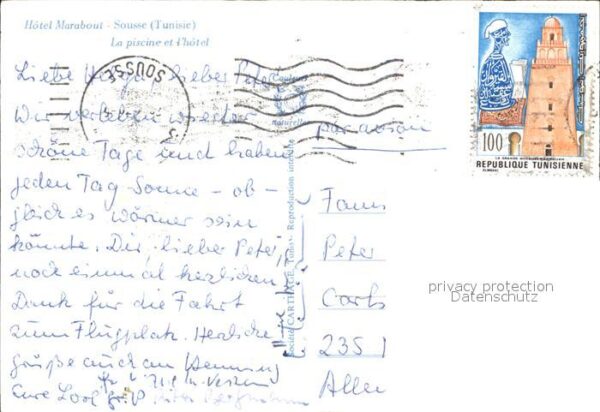 Hôtel Marabout - Sousse (Tunisie)
La piscine et l'hôtel
SOUSSE
Couleurs naturelles
100
LA GRANDE MOSQUEE KAIROUAN
REPUBLIQUE TUNISIENNE
Liebe, lieber Peter
Wir verleben
schöne Tage und haben
jeden Tag Sonne - ob-
gleich es wärmer sein
könnte. Dir, lieber Peter,
noch einmal herzlichen
Dank für die Fahrt
zum Flugplatz. Herzliche
Grüße auch an Henning
Eure
par avion
Société CARTHAGE, Tunis - Reproduction interdite
Peter
2351
privacy protection
Datenschutz